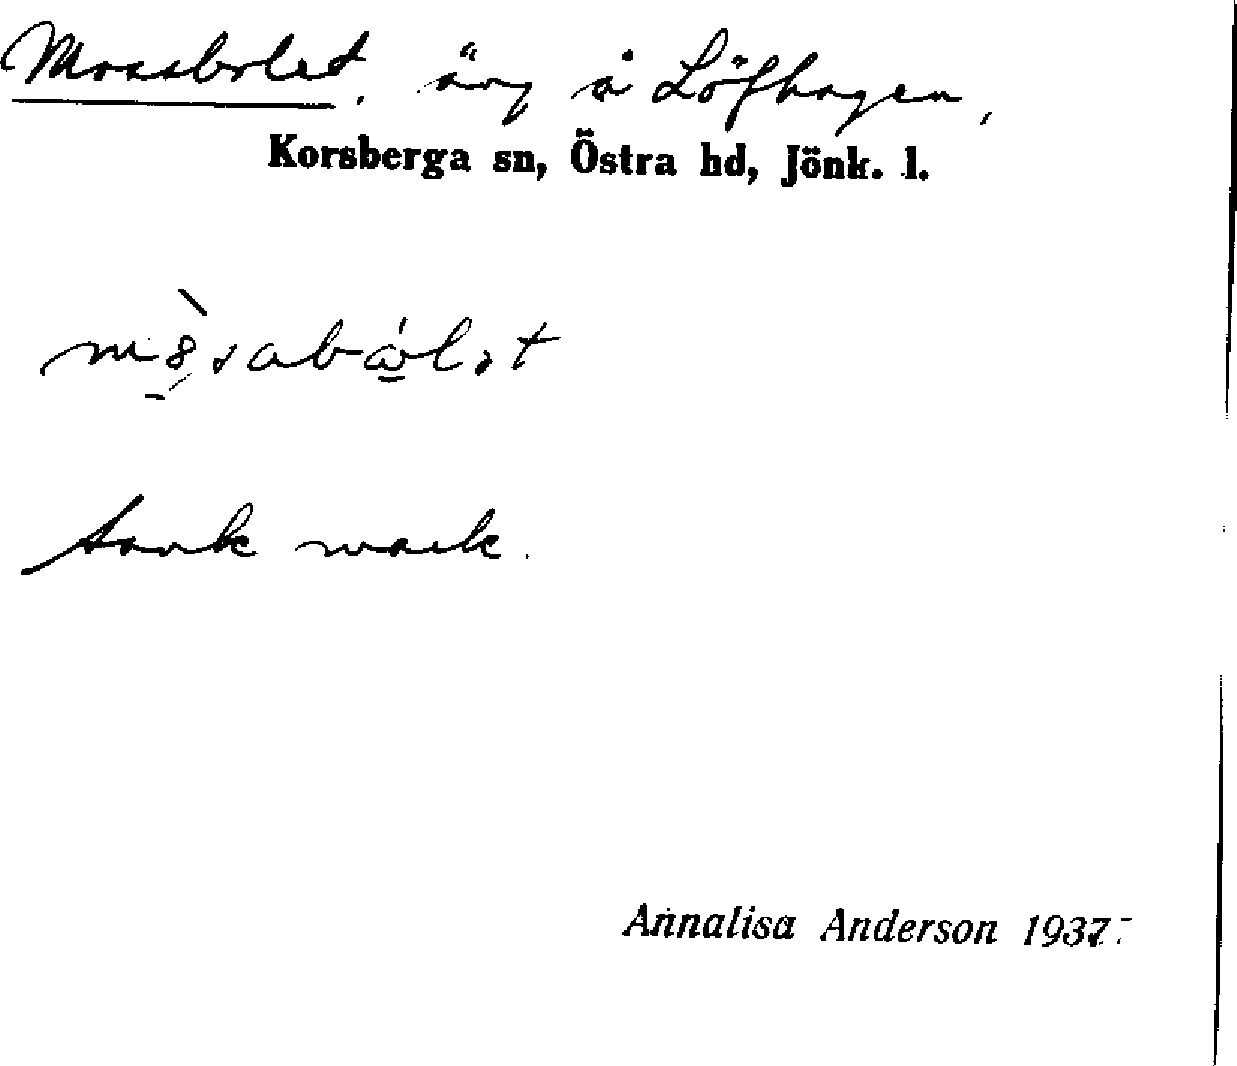 Mossbolet, äng å Löfhagen,
Korsberga sn, Östra hd, Jönk. l.
sank mark.
Annalisa Anderson 1937.